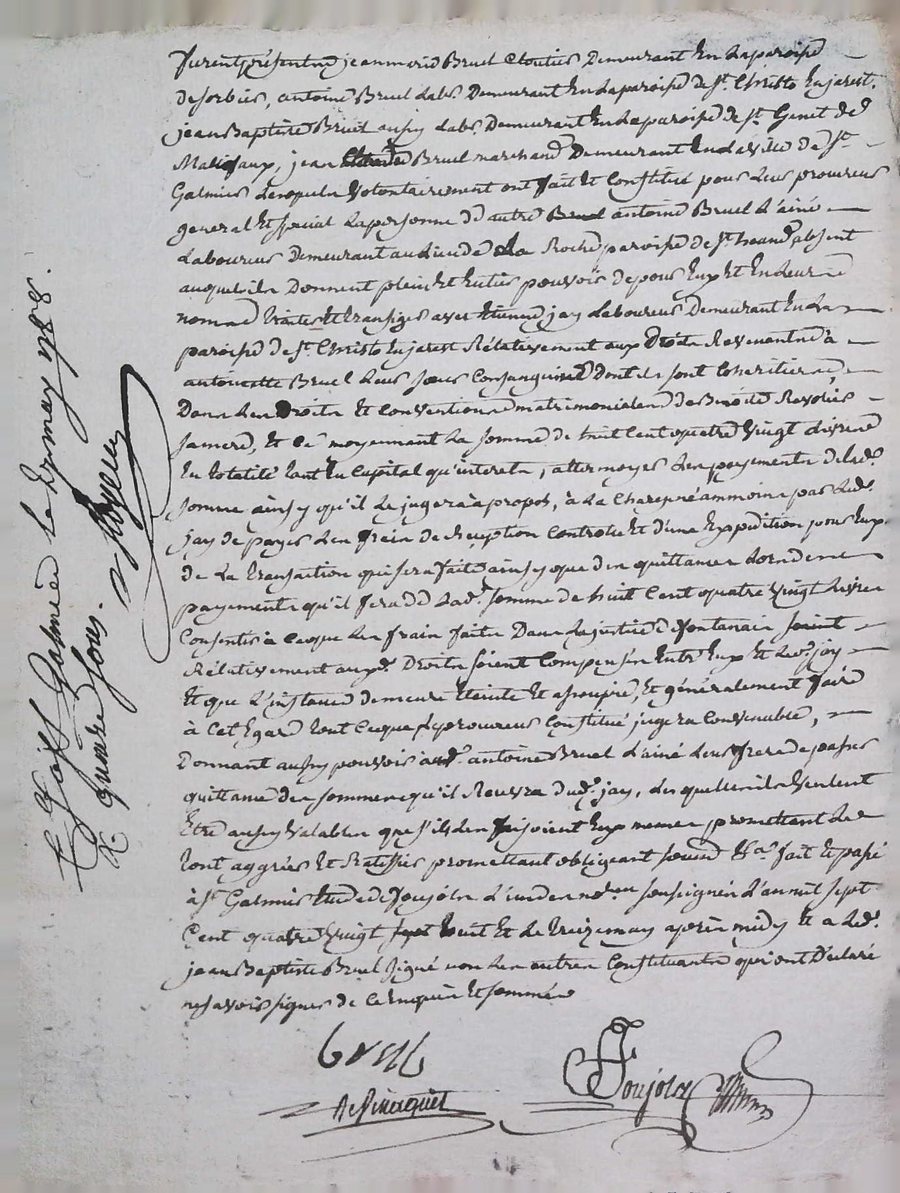 furent présents jean marie Bruel Cloutier Demeurant En La paroisse
de sorbier, antoine Bruel Lab. Demeurant En La paroisse de St. Christo En jarest,
jean Baptiste Bruel aussy Lab. Demeurant En La paroisse de St. Genet de
Malifaux, jean Bruel marchand Demeurant En La Ville de St.
Galmier Lesquels Volontairement ont fait Et Constitué pour Leur procureur
general Et special La personne de autre antoine Bruel L'ainé
Laboureur Demeurant au Lieu de La Roche paroisse de St. heand, absent
auquel ils Donnent plein Et Entier pouvoir de pour Eux Et En Leur
nom Traiter Et transiger avec Etienne jay Laboureur Demeurant En La
paroisse de St. Christo En jarest Rélativement aux Droits Revenants à
antoinette Bruel Leur soeur Consanguine Dont ils sont Cohéritiers,
Dans Les Droits Et Conventions matrimoniales de Benoite
sa mere, Et Ce moyennant La somme de huit Cent quatre Vingt Livres
En totalité tant En Capital qu'interets, attermoyer Les payements de Lad.
somme ainsy qu'il Le jugera à propos, à La Charge néammoins par Led.
jay de payer Les frais de réception Controlle Et d'une Expédition pour Eux
de La transaction qui sera faite ainsy que des quittances Lors des
payements qu'il fera de Lad. somme de huit Cent quatre Vingt Livres
Consentir à Ceque Les frais faits Dans La justice de fontanès soient
Rélativement auxd. Droits soient Compensés Entr'Eux Et Led. jay
Et que L'instance demeure Eteinte Et assoupie, Et généralement faire
à Cet Egard tout Ceque Led. procureur Constitué jugera Convenable,
Donnant aussy pouvoir aud. antoine Bruel L'ainé Leur frere de passer
quittance des sommes qu'il Recevra dud. jay, Lesquelles ils Veulent
Etre aussy Valables que s'ils Les faisoient Eux memes promettant Le
tout aggréer Et Ratiffier promettant obligeant soumis &a. fait Et passé
à St. Galmier Etude de Joujola L'un des no.res soussignés L'an mil sept
Cent quatre Vingt huit Et Le treize may après midy Et a Led.
jean Baptiste Bruel signé non Les autres Constituants qui ont Déclaré
ne savoir signer de Ce Enquis Et sommés
bruel
Joujola
St. Galmier Le 13 may 1788.